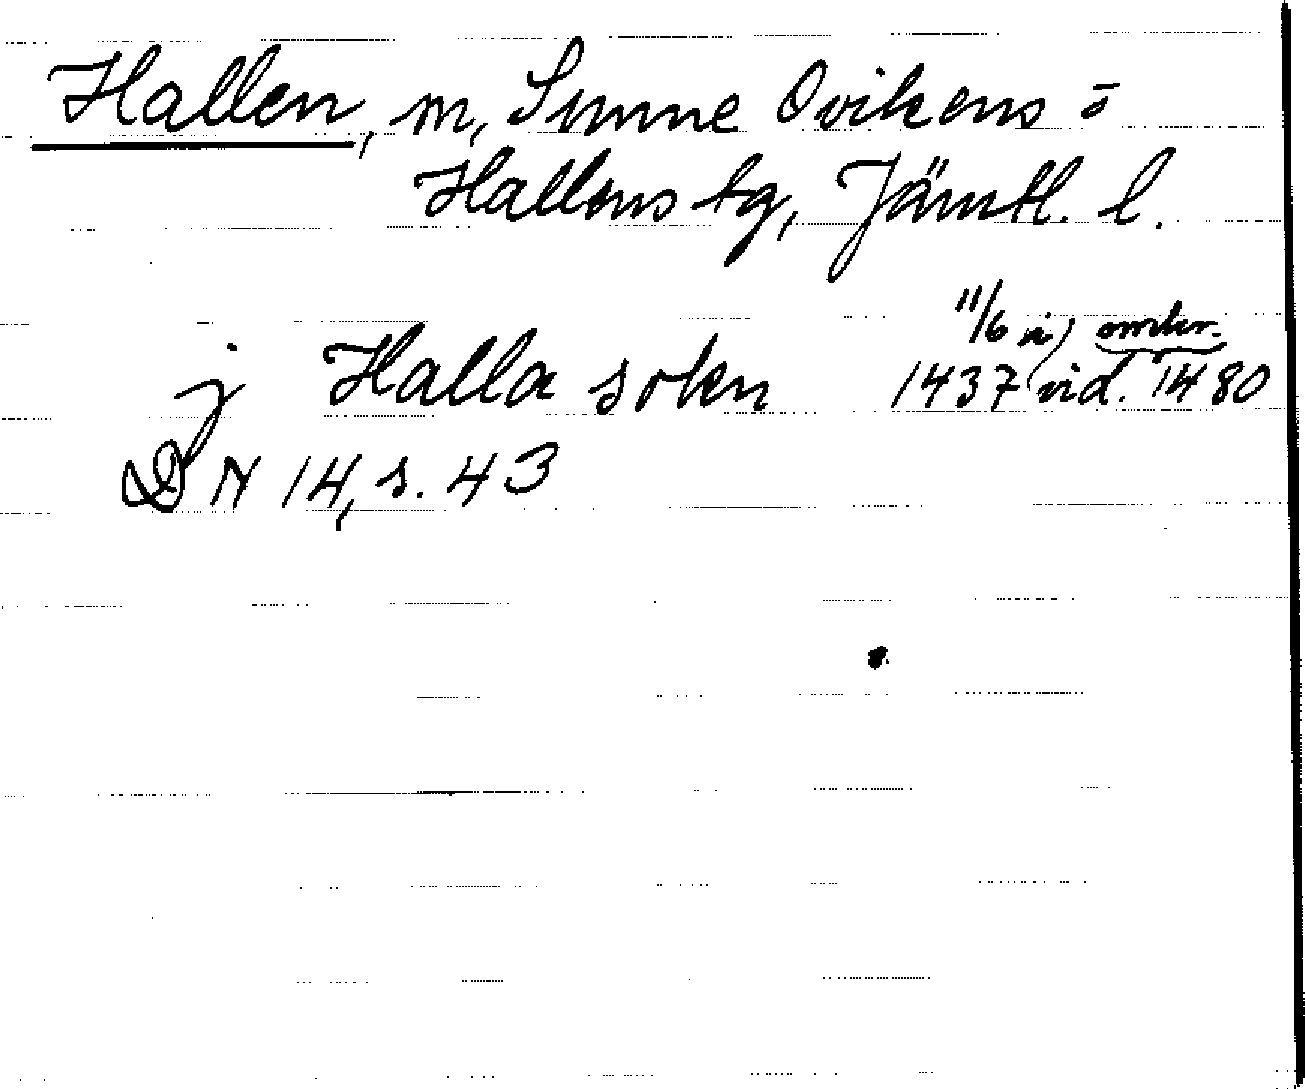 Hallen, m, Sunne Ovikens o
Hallens tg, Jämtl. l.
11/6 i omkr.
j Halla sokn 1437 (vid. 1480
DN 14, s. 43